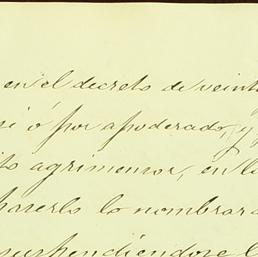 en el decreto de veint
si ó por apoderado, y
to agrimensor, en la
hacerlo lo nombrará
suspendiéndose l